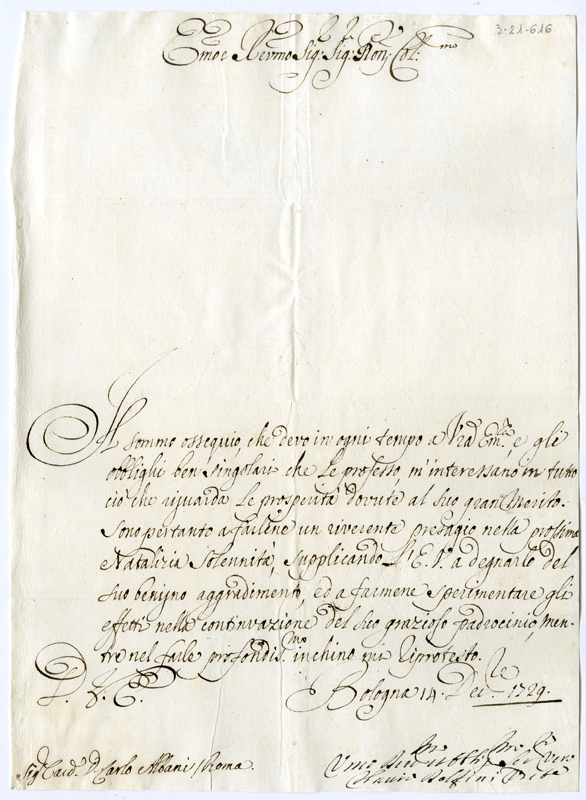 3-21-616
Emo e Revmo Sig: Sig: Pron. Col:mo
Il sommo ossequio, che devo in ogni tempo a Vra Em.za, e gli
obblighi ben singolari che Le professo, m'interessano in tutto
ciò che riguarda le prosperità dovute al suo gran Merito.
Sono pertanto a farlene un riverente presagio nella prossima
Natalizia Solennità, supplicando L'E. V. a degnarlo del
suo benigno aggradimento, ed a farmene sperimentare gli
effetti nella continvazione del suo grazioso padrocinio, men-
tre nel farle profondis.mo inchino mi riprotesto.
D. V. E.
Bologna 14. Dec.le 1729.
Sig. Card. D. Carlo Albani / Roma.
Vmo Devmo Obblmo